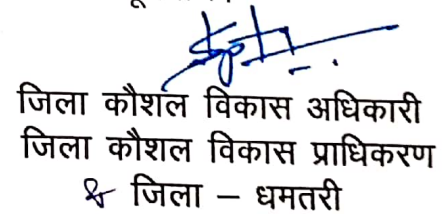 जिला कौशल विकास अधिकारी
जिला कौशल विकास प्राधिकरण
& जिला – धमतरी